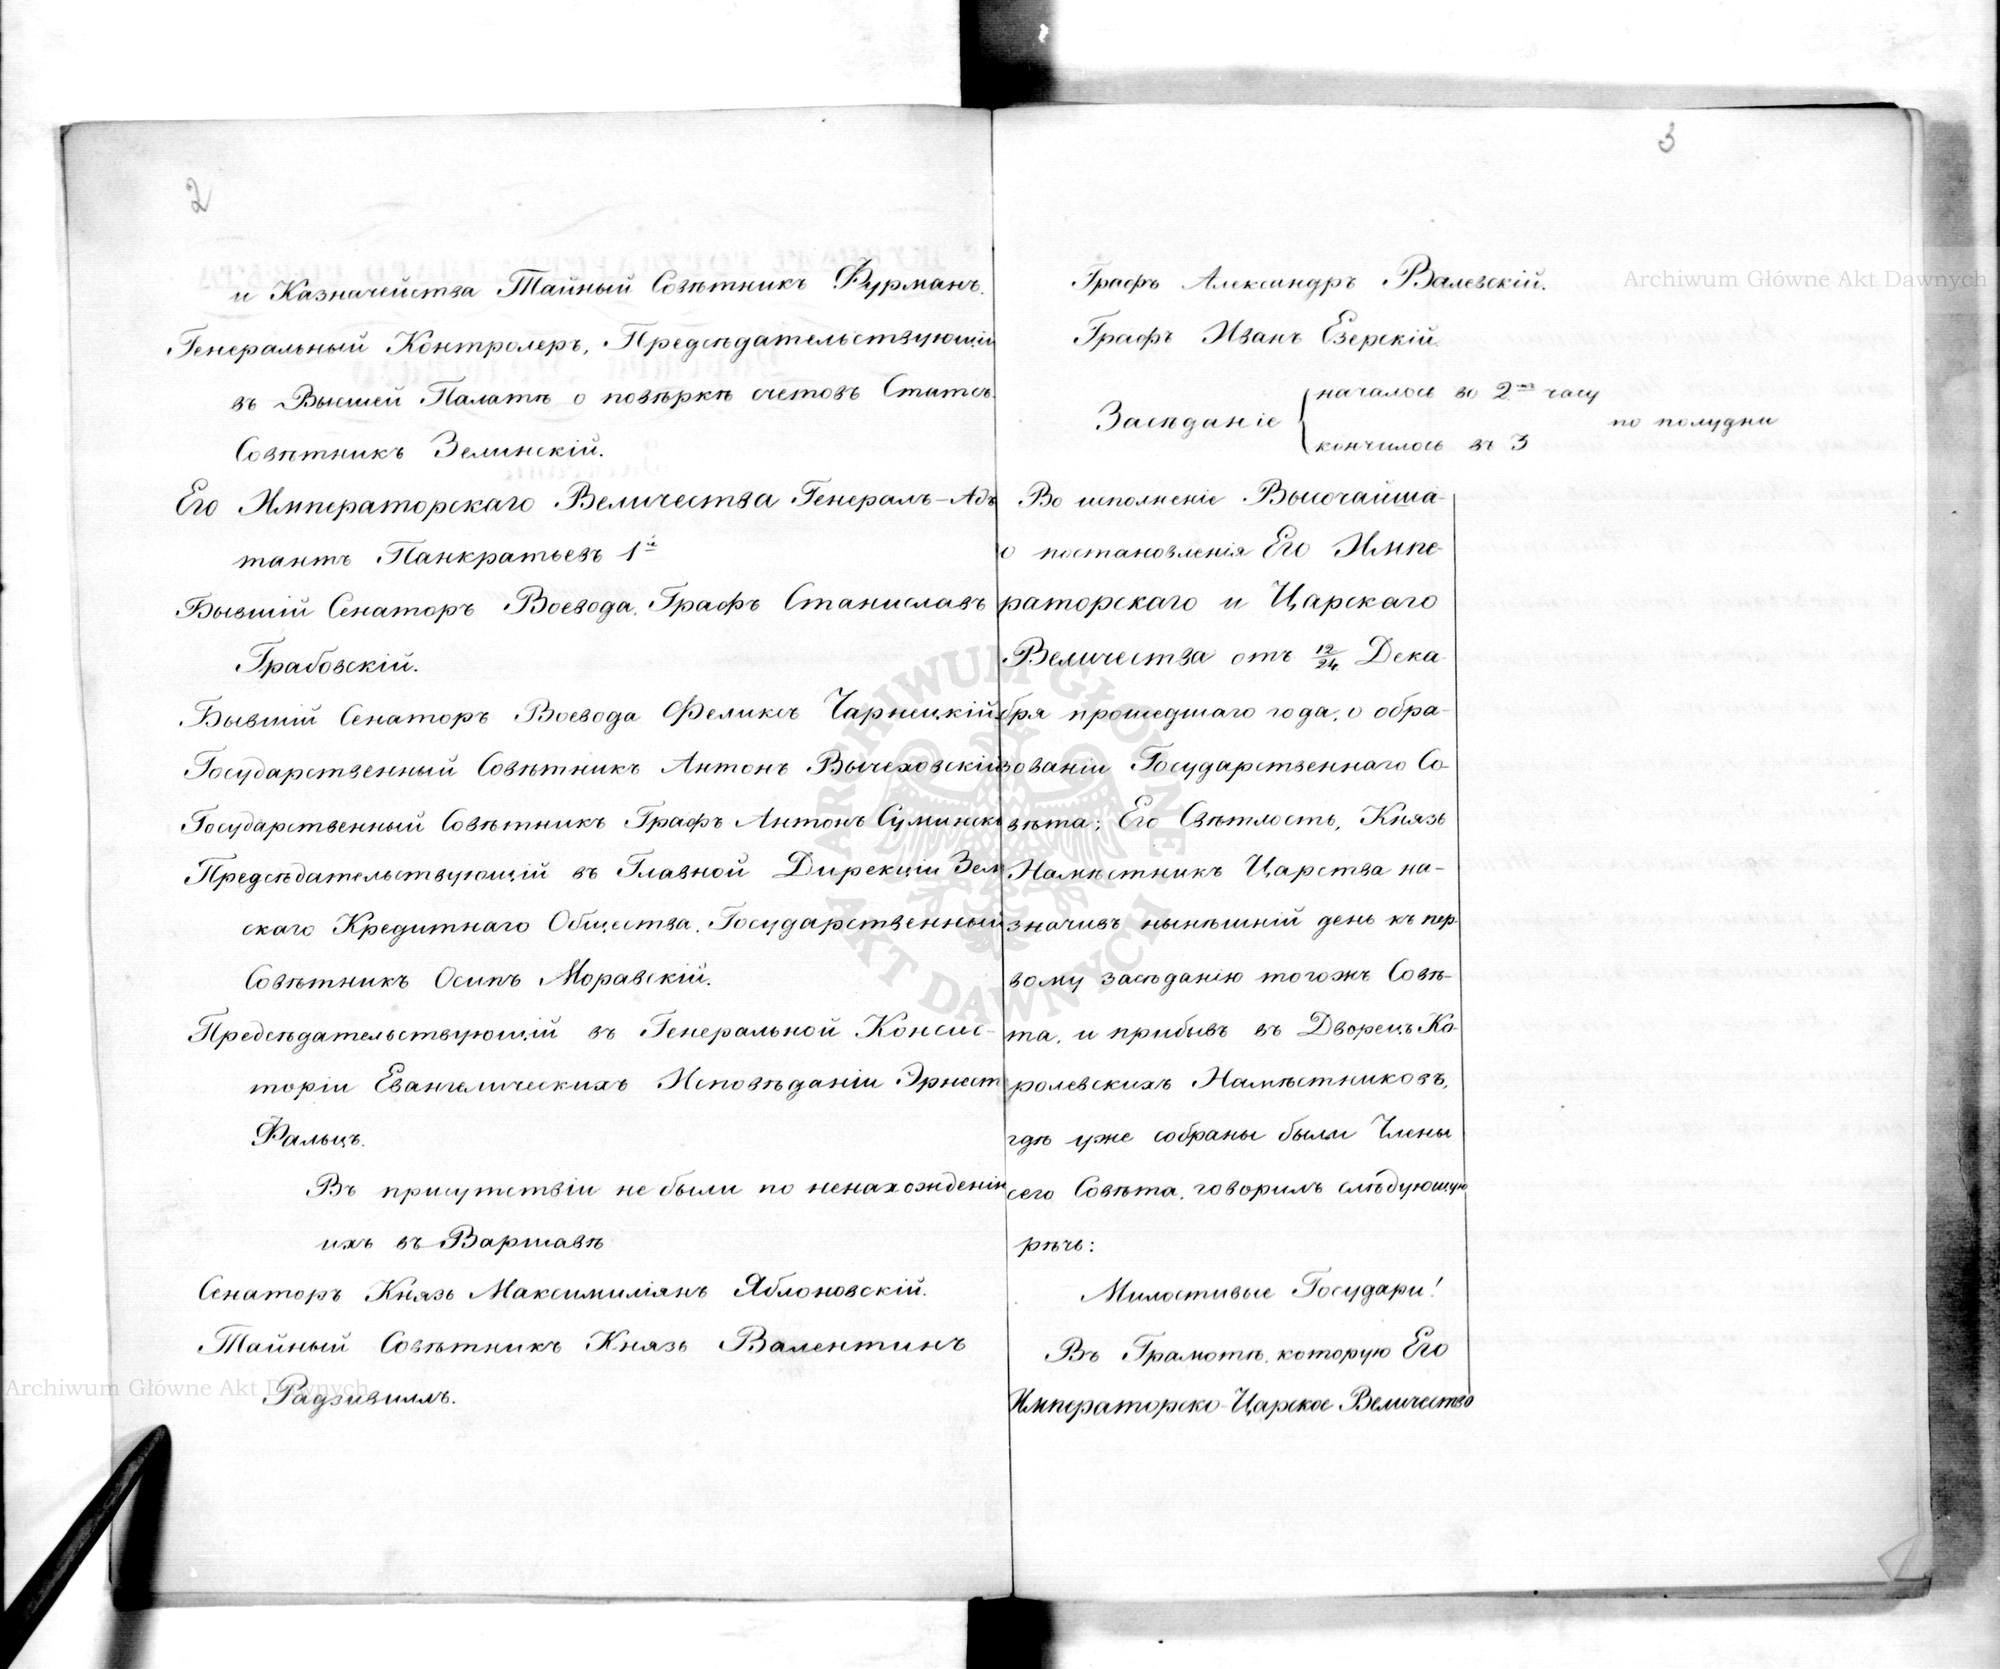 2
и Казначейства Тайный Совѣтникъ Фурманъ.
Генеральный Контролеръ, Предсѣдательствующій
въ Высшей Палатѣ о повѣркѣ счетовъ Статсъ
Совѣтникъ Зелинскій.
Его Императорскаго Величества Генералъ-Адъ
тантъ Панкратьевъ 1й
Бывшій Сенаторъ Воевода, Графъ Станиславъ
Грабовскій.
Бывшій Сенаторъ Воевода Феликсъ Чарнецкій
Государственный Совѣтникъ Антонъ Вычеховскій
Государственный Совѣтникъ Графъ Антонъ Суминскі
Предсѣдательствующій въ Главной Дирекціи Зем
скаго Кредитнаго Общества, Государственный
Совѣтникъ Осипъ Моравскій.
Предсѣдательствующій въ Генеральной Консис-
торіи Евангелическихъ Исповѣданій Эрнест
Фальцъ.
Въ присутствіи не были по ненахожденію
ихъ въ Варшавѣ
Сенаторъ Князь Максимиліянъ Яблоновскій.
Тайный Совѣтникъ Князь Валентинъ
Радзивилъ.
3
Графъ Александръ Валевскій.
Графъ Иванъ Езерскій.
Засѣданіе { началось во 2мъ часу
кончилось въ 3 по полудни
Во исполненіе Высочайша-
о постановленія Его Импе-
раторскаго и Царскаго
Величества отъ 12/24 Дека-
бря прошедшаго года, о обра-
зованіи Государственнаго Со-
вѣта; Его Свѣтлость, Князь
Намѣстникъ Царства на-
значивъ нынѣшній день къ пер
вому засѣданію тогожъ Совѣ-
та, и прибывъ въ Дворецъ Ко-
ролевскихъ Намѣстниковъ,
гдѣ уже собраны были Члены
сего Совѣта, говорилъ слѣдующую
рѣчь:
Милостивые Государи!
Въ Грамотѣ, которую Его
Императорско-Царское Величество
Archiwum Główne Akt Dawnych
ARCHIWUM GŁÓWNE AKT DAWNYCH
Archiwum Główne Akt Dawnych